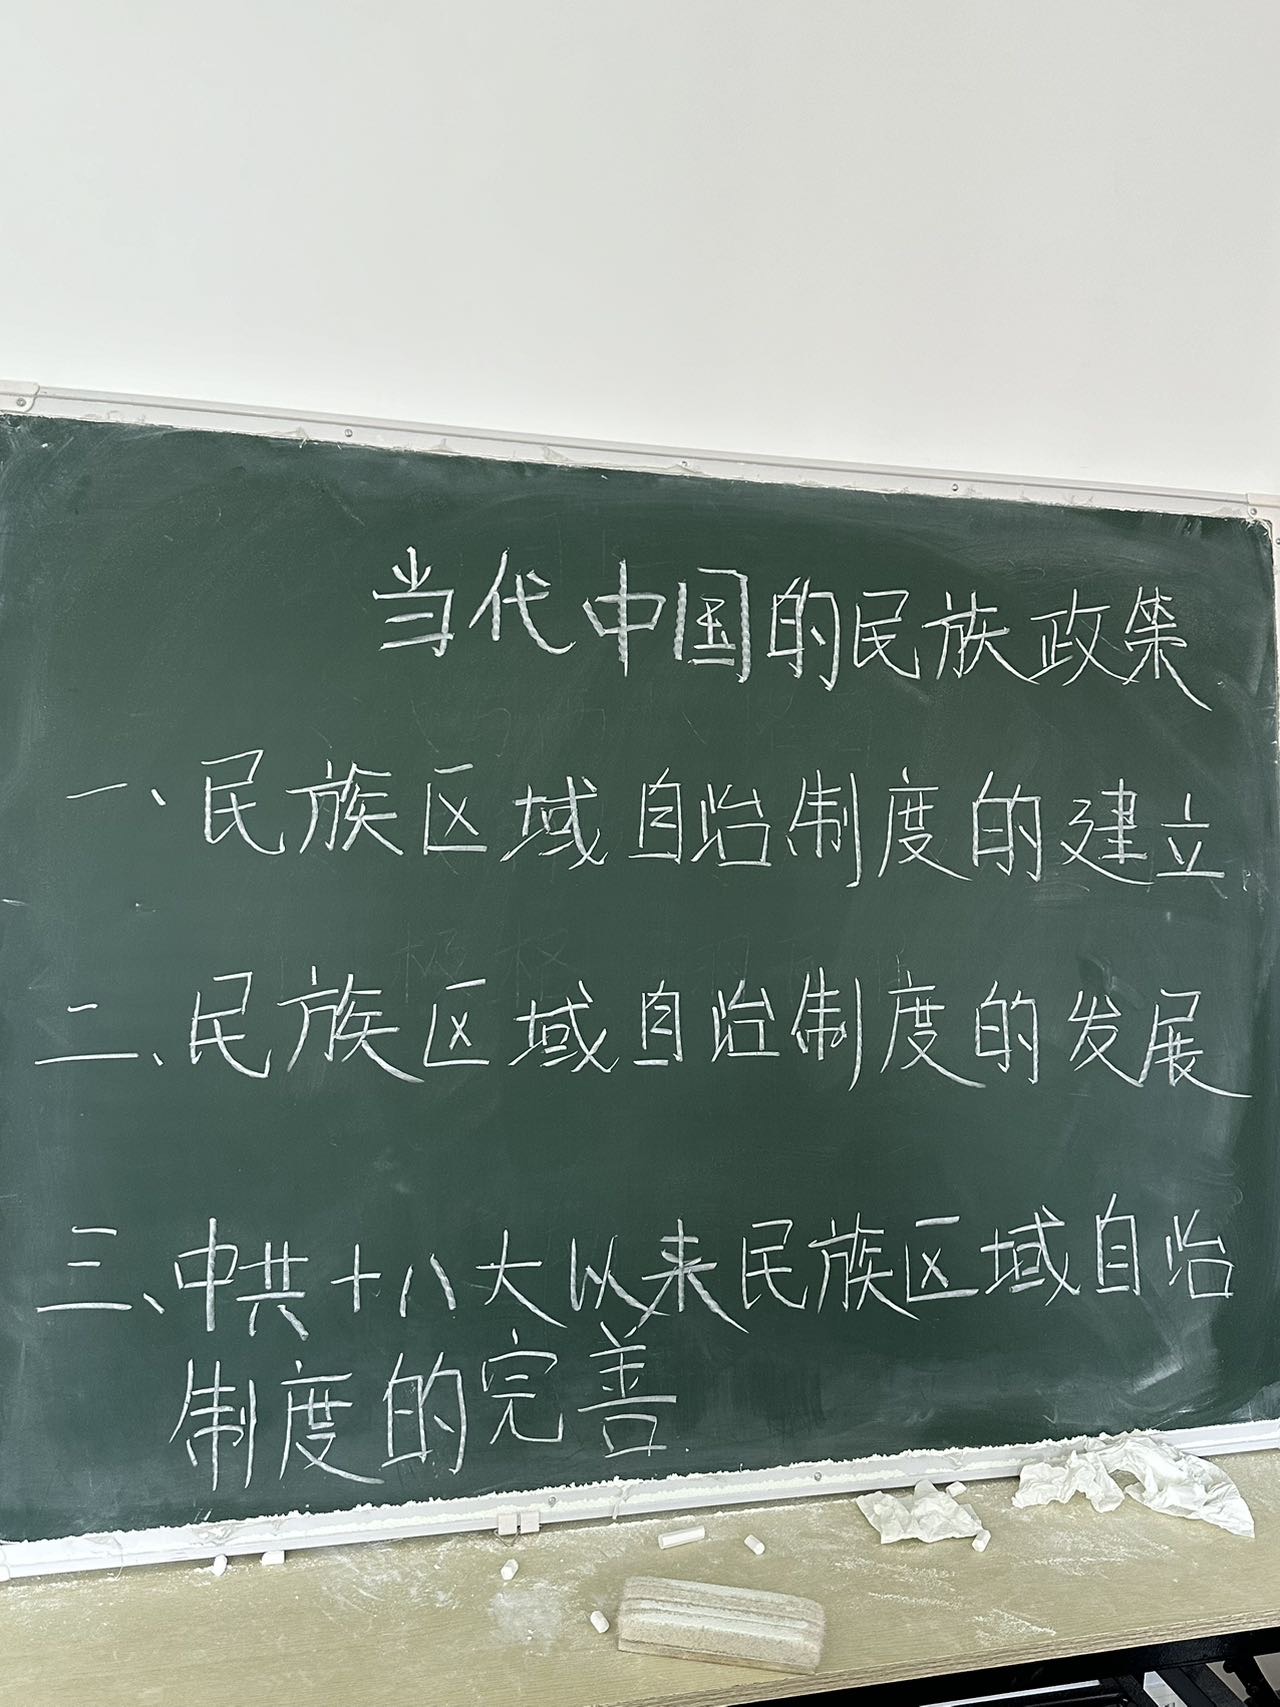 当代中国的民族政策
一、民族区域自治制度的建立
二、民族区域自治制度的发展
三、中共十八大以来民族区域自治
制度的完善